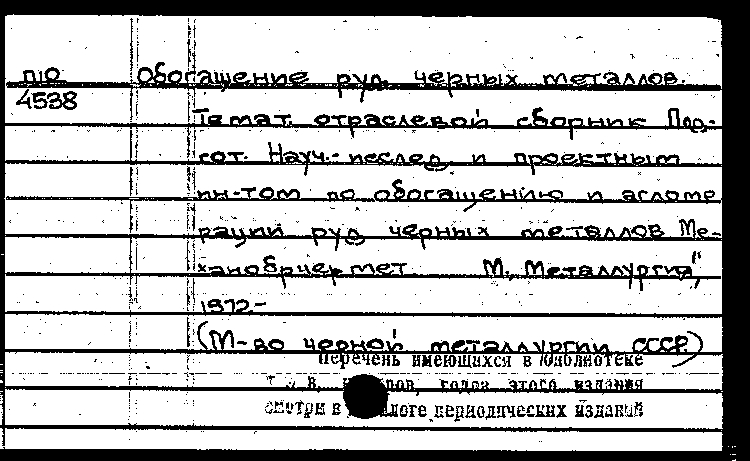 П10 Обогащение руд черных металлов.
4538
Темат. отраслевой сборник Под-
гот. Науч.-исслед. и проектным
ин-том по обогащению и агломе
рации руд черных металлов Ме-
ханобрчермет М., Металлургия",
1972-
(М-во черной металлургии СССР)
Перечень имеющихся в библиотеке
годов этого издания
смотри в периодических изданий